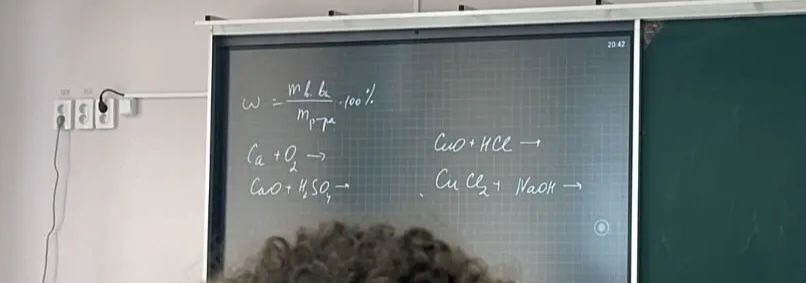 20:42
ω = m в. ва / m р-ра · 100%
Ca + O₂ →
CaO + H₂SO₄ →
CuO + HCl →
CuCl₂ + NaOH →